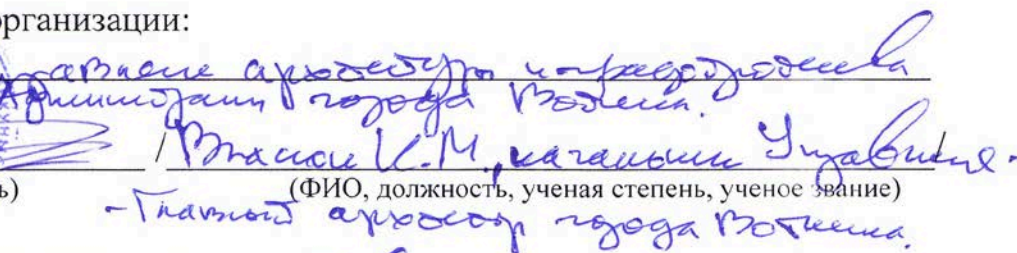 организации:
архитектуры и градостроительства
Администрации города Воткинска.
/ Власов К.М., начальник Управления - /
ь) (ФИО, должность, ученая степень, ученое звание)
- Главный архитектор города Воткинска.